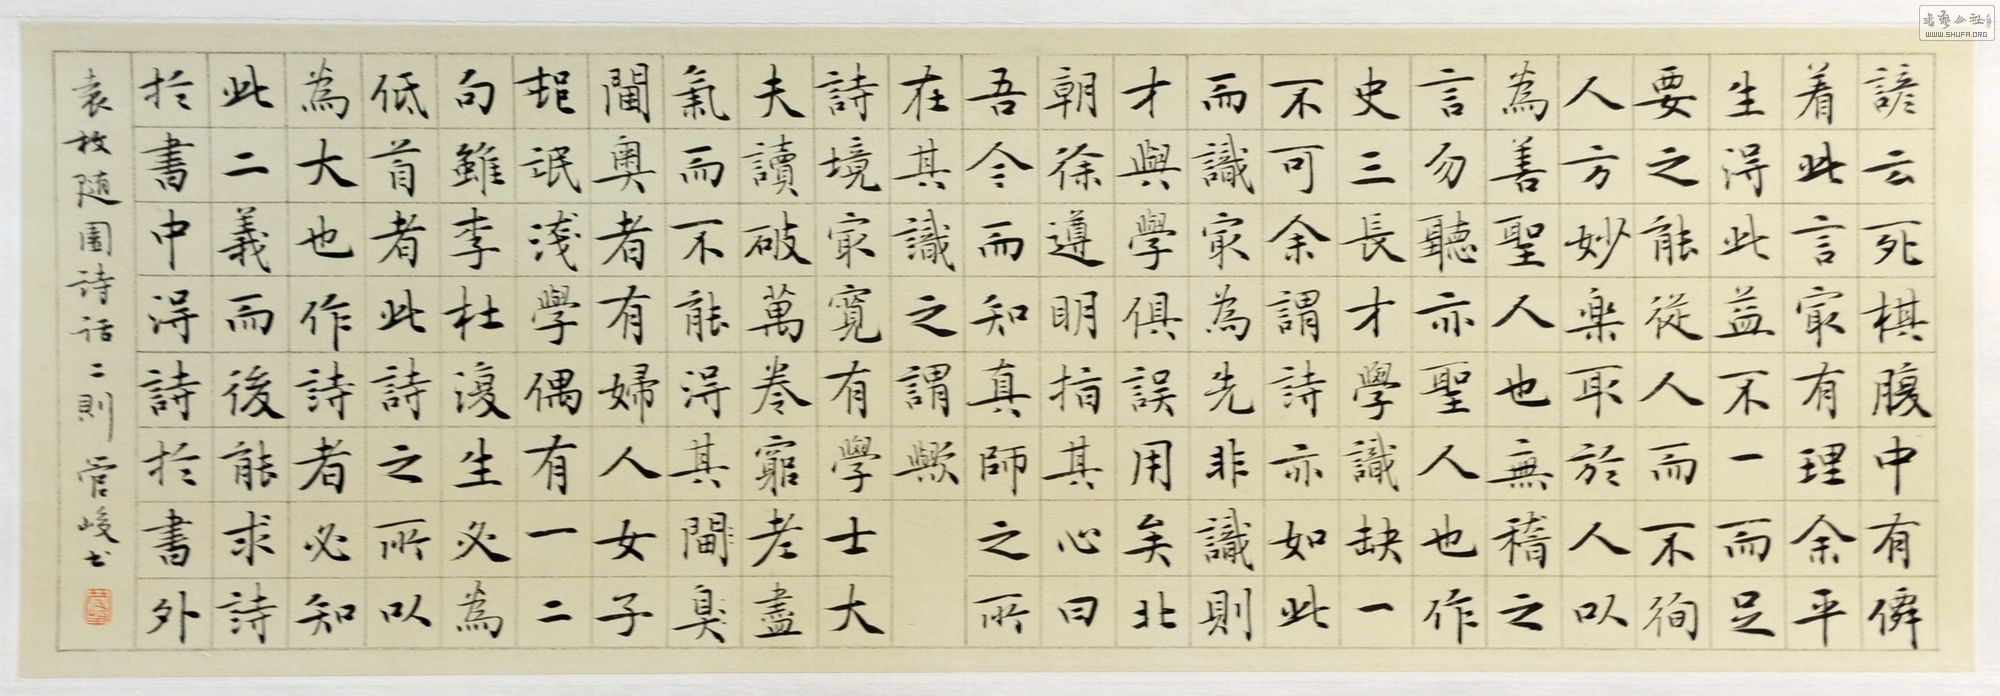 諺云死棋腹中有僊
着此言㝡有理余平
生淂此益不一而足
要之能從人而不徇
人方妙樂取於人以
為善聖人也無稽之
言勿聽亦聖人也作
史三長才學識缺一
不可余謂詩亦如此
而識㝡為先非識則
才與學俱誤用矣北
朝徐遵明指其心曰
吾今而知真師之所
在其識之謂歟
詩境㝡寬有學士大
夫讀破萬卷窮老盡
氣而不能淂其閫奧
閫奧者有婦人女子
邨氓淺學偶有一二
句雖李杜復生必為
低首者此詩之所以
為大也作詩者必知
此二義而後能求詩
於書中淂詩於書外
袁枚随園詩話二則 管峻书
書藝公社
WWW.SHUFA.ORG